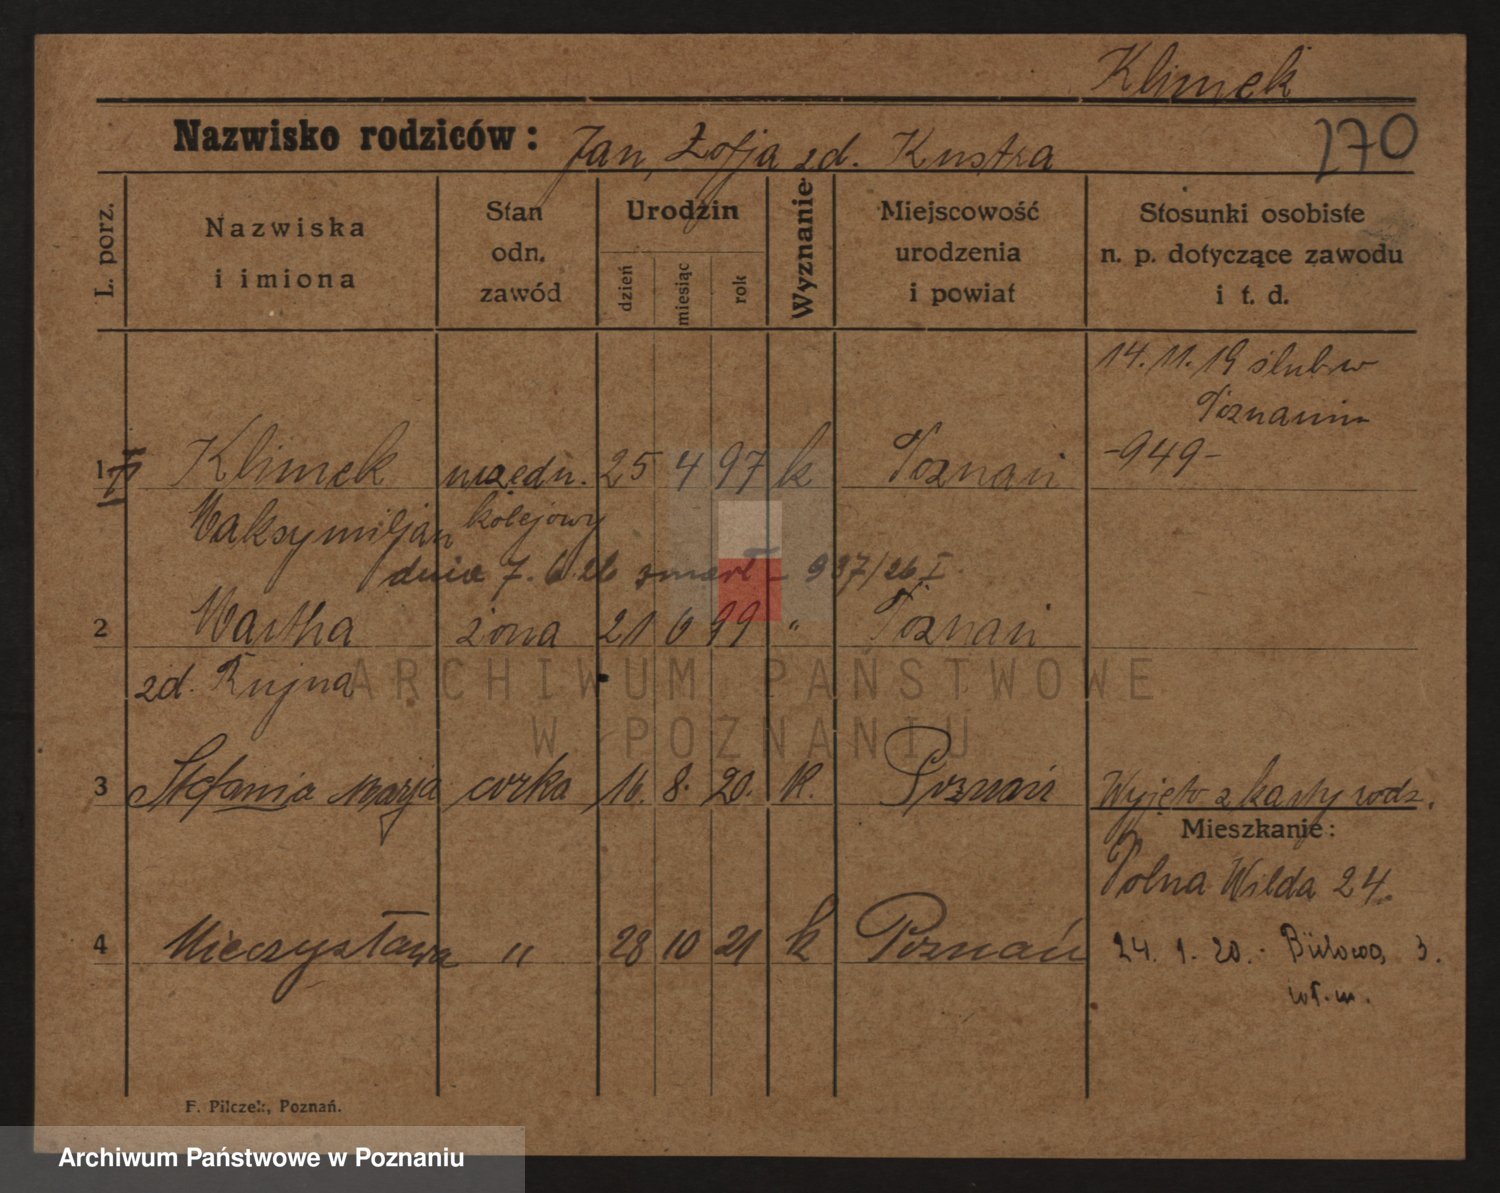 Klimek
Nazwisko rodziców: Jan, Zofja zd. Kustra
170
L. porz.
Nazwiska
i imiona
Stan
odn.
zawód
Urodzin
dzień
miesiąc
rok
Wyznanie
Miejscowość
urodzenia
i powiat
Stosunki osobiste
n. p. dotyczące zawodu
i t. d.
14.11.19 ślub w
Poznaniu
-949-
1 Klimek urzędn. 25 4 97 k Poznań
Maksymiljan kolejowy
dnia 7.6.26 zmarł - 937/26 I
2 Martha żona 21 6 99 " Poznań
zd. Kujna
ARCHIWUM PAŃSTWOWE
W POZNANIU
3 Stefania Marja corka 16. 8. 20. k. Poznań
Wyjęto z karty rodz.
Mieszkanie:
Polna Wilda 24.
4 Mieczysława " 28 10 21 k Poznań
24. 1. 20. - Bülowa 3.
wł. m.
F. Pilczek, Poznań.
Archiwum Państwowe w Poznaniu